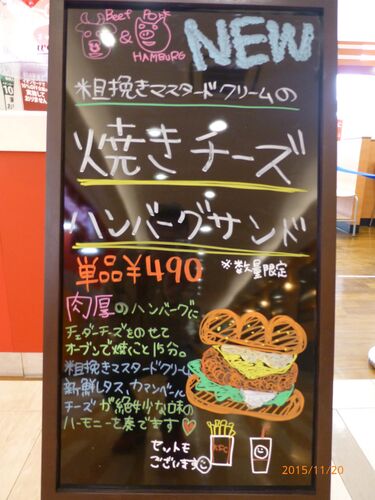 Beef & Pork
HAMBURG
NEW
粗挽きマスタードクリームの
焼きチーズ
ハンバーグサンド
単品¥490
※数量限定
肉厚のハンバーグに
チェダーチーズをのせて
オーブンで焼くこと15分。
粗挽きマスタードクリーム
新鮮レタス、カマンベール
チーズが絶妙な味の
ハーモニーを奏でます
セットも
ございます
KFC
2015/11/20